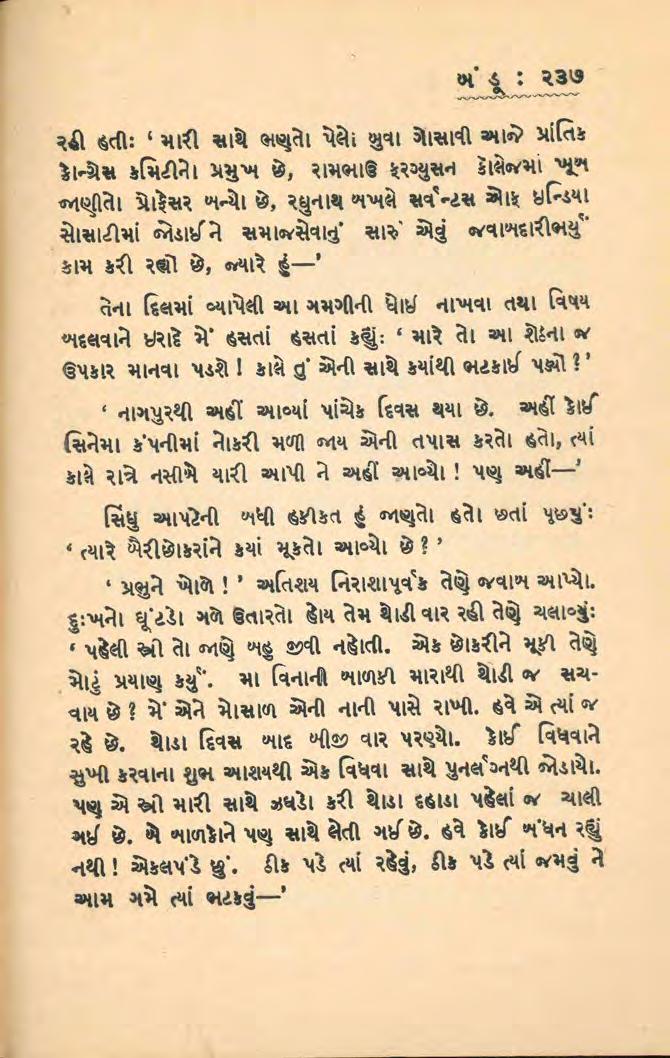 બંડૂ : ૨૩૭
રહી હતીઃ ‘ મારી સાથે ભણતો પેલો બુવા ગોસાવી આજે પ્રાંતિક
કોન્ગ્રેસ કમિટીનો પ્રમુખ છે, રામભાઉ ફરગ્યુસન કૉલેજમાં ખૂબ
જાણીતો પ્રોફેસર બન્યો છે, રઘુનાથ બખલે સર્વન્ટસ ઓફ ઇન્ડિયા
સોસાટીમાં જોડાઈને સમાજસેવાનું સારું એવું જવાબદારીભર્યું
કામ કરી રહ્યો છે, જ્યારે હું—’
તેના દિલમાં વ્યાપેલી આ ગમગીની ધોઈ નાખવા તથા વિષય
બદલવાને ઇરાદે મેં હસતાં હસતાં કહ્યુંઃ ‘ મારે તો આ શેઠના જ
ઉપકાર માનવા પડશે ! કાલે તું એની સાથે કયાંથી ભટકાઈ પડ્યો ?’
‘ નાગપુરથી અહીં આવ્યાં પાંચેક દિવસ થયા છે. અહીં કોઈ
સિનેમા કંપનીમાં નોકરી મળી જાય એની તપાસ કરતો હતો, ત્યાં
કાલે રાત્રે નસીબે યારી આપી ને અહીં આવ્યો ! પણ અહીં—’
સિંધુ આપટેની બધી હકીકત હું જાણતો હતો છતાં પૂછ્યુંઃ
‘ ત્યારે બૈરીછોકરાંને કયાં મૂકતો આવ્યો છે ? ’
‘ પ્રભુને ખોળે ! ’ અતિશય નિરાશાપૂર્વક તેણે જવાબ આપ્યો.
દુઃખનો ઘૂંટડો ગળે ઉતારતો હોય તેમ થોડી વાર રહી તેણે ચલાવ્યુંઃ
‘ પહેલી સ્ત્રી તો જાણે બહુ જીવી નહોતી. એક છોકરીને મૂકી તેણે
મોટું પ્રયાણ કર્યું. મા વિનાની બાળકી મારાથી થોડી જ સચ-
વાય છે ? મેં એને મોસાળ એની નાની પાસે રાખી. હવે એ ત્યાં જ
રહે છે. થોડા દિવસ બાદ બીજી વાર પરણ્યો. કોઈ વિધવાને
સુખી કરવાના શુભ આશયથી એક વિધવા સાથે પુનર્લગ્નથી જોડાયો.
પણ એ સ્ત્રી મારી સાથે ઝઘડો કરી થોડા દહાડા પહેલાં જ ચાલી
ગઈ છે. બે બાળકોને પણ સાથે લેતી ગઈ છે. હવે કોઈ બંધન રહ્યું
નથી ! એકલપંડે છું. ઠીક પડે ત્યાં રહેવું, ઠીક પડે ત્યાં જમવું ને
આમ ગમે ત્યાં ભટકવું—’